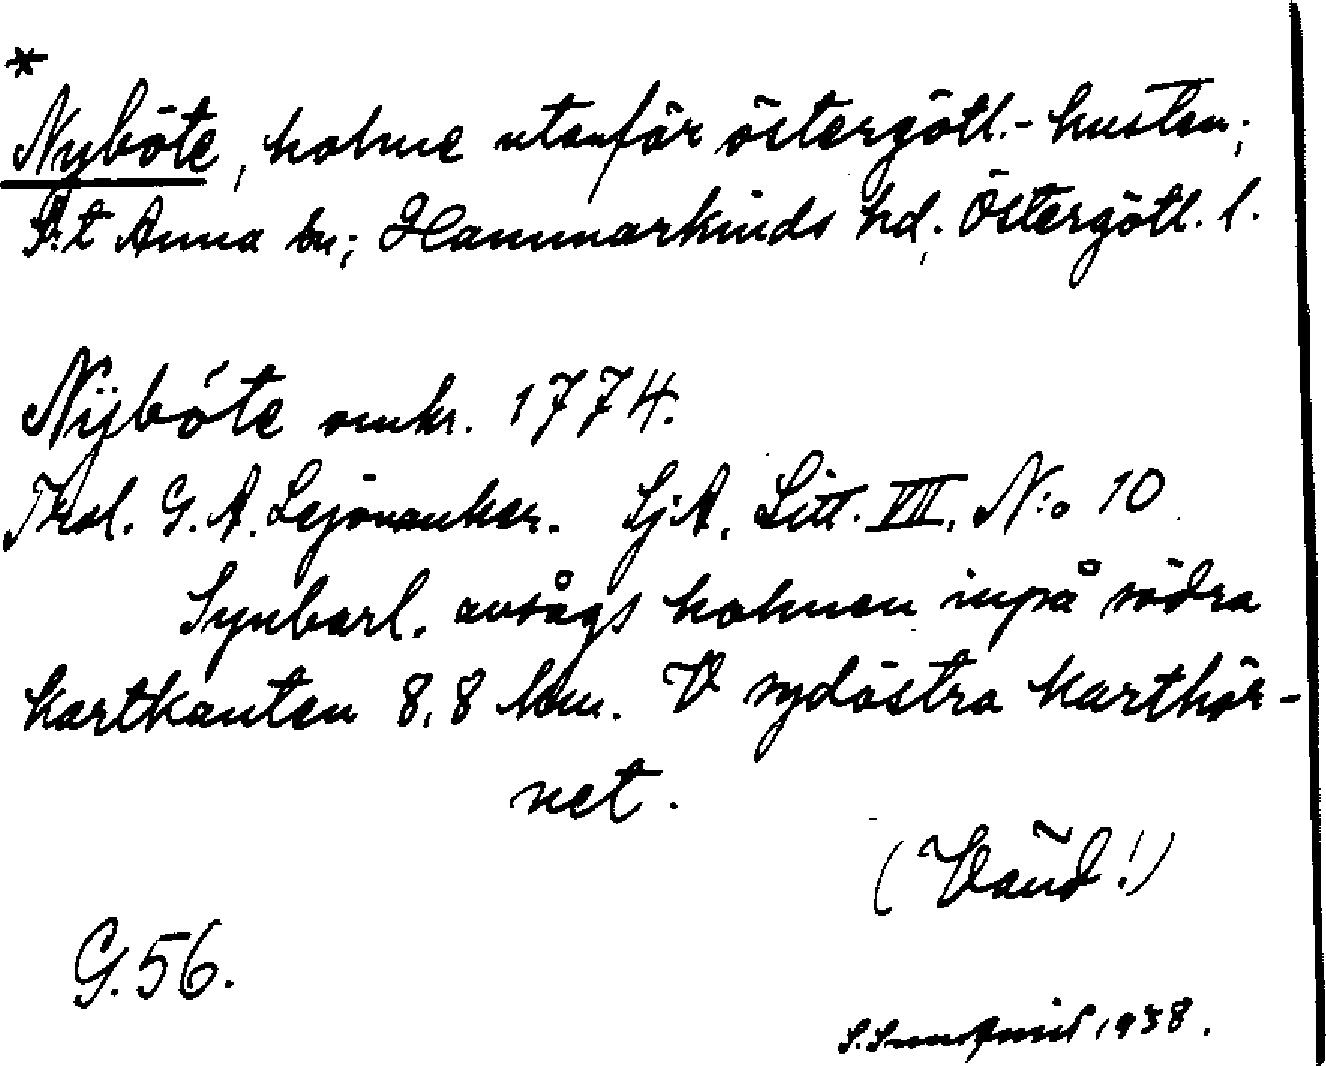 *
Nyböte, holme utanför östergötl.-kusten;
S:t Anna sn; Hammarkinds hd; Östergötl. l.
Nÿböte omkr. 1774.
Krel. G. A. Lejonanker. SjA. Litt. VIII. N:o 10
Synbarl. avsågs holmen inpå södra
kartkanten 8,8 km. V sydöstra karthör-
net.
(Vänd!)
G. 56.
1938.